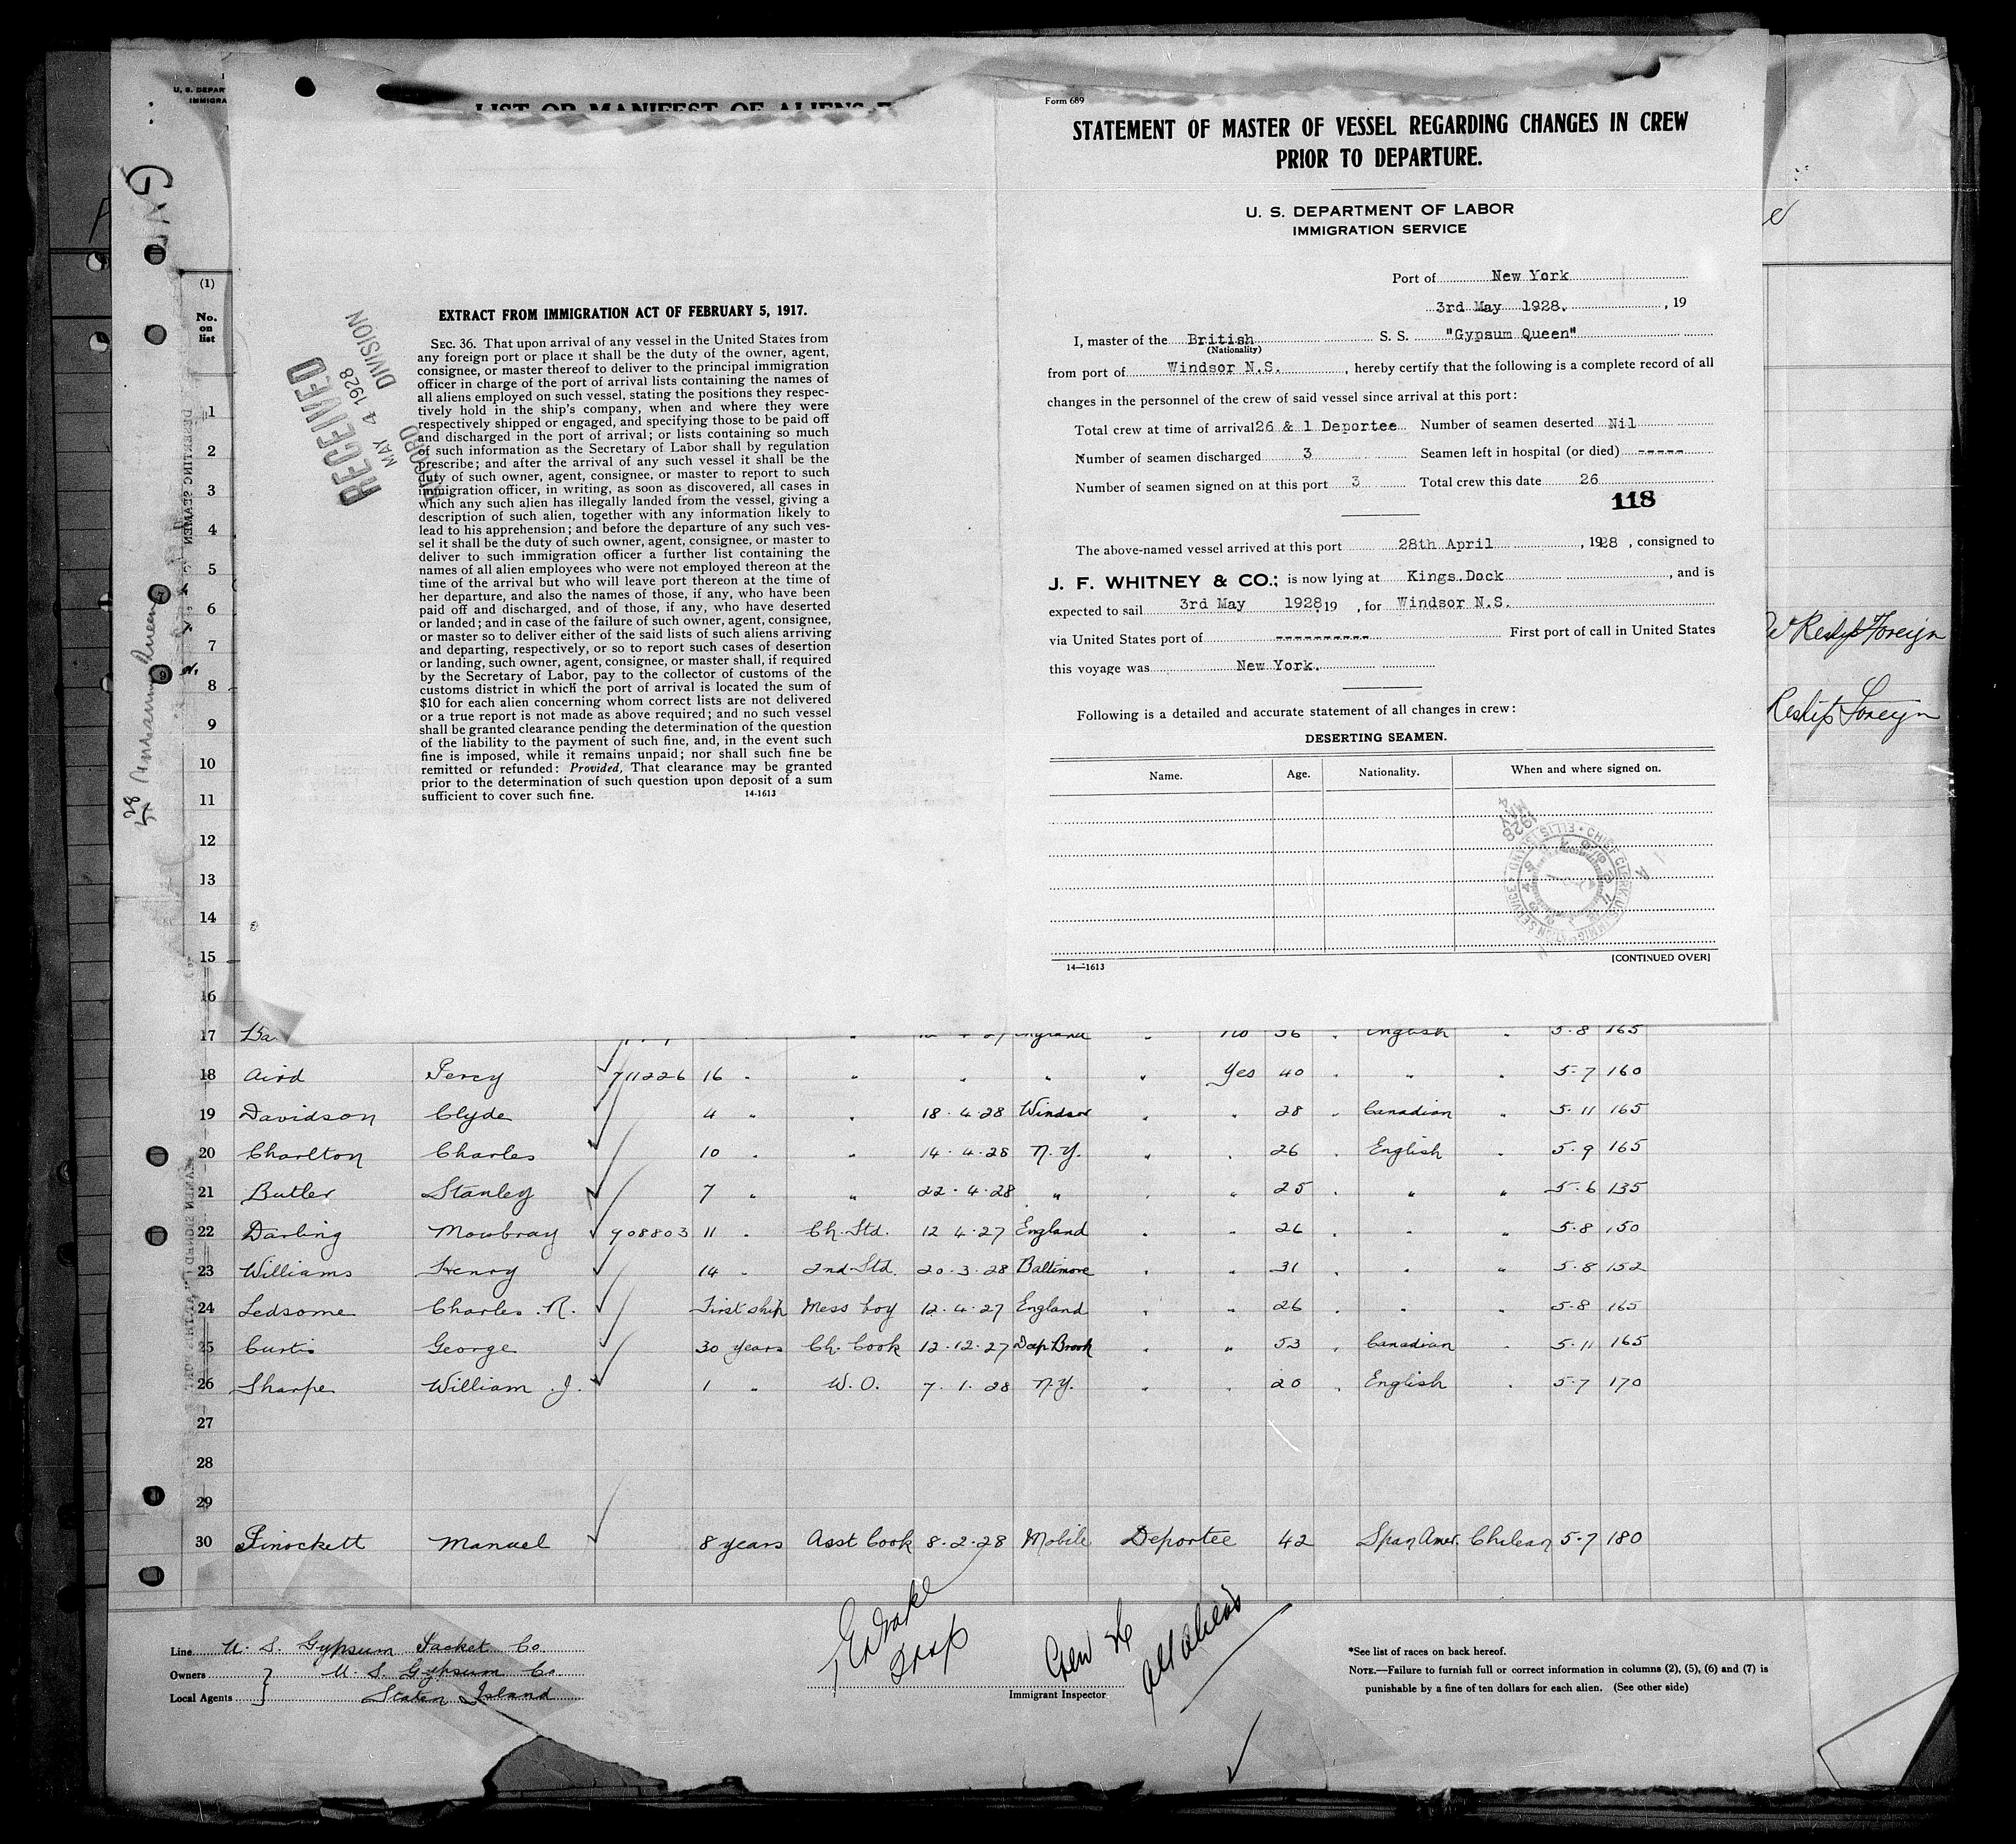 U. S. DEPAR
IMMIGRA
LIST OR MANIFEST OF ALIENS
(1)
No.
on
list
RECEIVED
MAY 4 1928
RECORD DIVISION
EXTRACT FROM IMMIGRATION ACT OF FEBRUARY 5, 1917.
SEC. 36. That upon arrival of any vessel in the United States from
any foreign port or place it shall be the duty of the owner, agent,
consignee, or master thereof to deliver to the principal immigration
officer in charge of the port of arrival lists containing the names of
all aliens employed on such vessel, stating the positions they respec-
tively hold in the ship's company, when and where they were
respectively shipped or engaged, and specifying those to be paid off
and discharged in the port of arrival; or lists containing so much
of such information as the Secretary of Labor shall by regulation
prescribe; and after the arrival of any such vessel it shall be the
duty of such owner, agent, consignee, or master to report to such
immigration officer, in writing, as soon as discovered, all cases in
which any such alien has illegally landed from the vessel, giving a
description of such alien, together with any information likely to
lead to his apprehension; and before the departure of any such ves-
sel it shall be the duty of such owner, agent, consignee, or master to
deliver to such immigration officer a further list containing the
names of all alien employees who were not employed thereon at the
time of the arrival but who will leave port thereon at the time of
her departure, and also the names of those, if any, who have been
paid off and discharged, and of those, if any, who have deserted
or landed; and in case of the failure of such owner, agent, consignee,
or master so to deliver either of the said lists of such aliens arriving
and departing, respectively, or so to report such cases of desertion
or landing, such owner, agent, consignee, or master shall, if required
by the Secretary of Labor, pay to the collector of customs of the
customs district in which the port of arrival is located the sum of
$10 for each alien concerning whom correct lists are not delivered
or a true report is not made as above required; and no such vessel
shall be granted clearance pending the determination of the question
of the liability to the payment of such fine, and, in the event such
fine is imposed, while it remains unpaid; nor shall such fine be
remitted or refunded: Provided, That clearance may be granted
prior to the determination of such question upon deposit of a sum
sufficient to cover such fine. 14-1613
Form 689
STATEMENT OF MASTER OF VESSEL REGARDING CHANGES IN CREW
PRIOR TO DEPARTURE.
U. S. DEPARTMENT OF LABOR
IMMIGRATION SERVICE
Port of New York
3rd May 1928. , 19
I, master of the British S. S. "Gypsum Queen"
(Nationality)
from port of Windsor N.S. , hereby certify that the following is a complete record of all
changes in the personnel of the crew of said vessel since arrival at this port:
Total crew at time of arrival 26 & 1 Deportee Number of seamen deserted Nil
Number of seamen discharged 3 Seamen left in hospital (or died) -----
Number of seamen signed on at this port 3 Total crew this date 26
118
The above-named vessel arrived at this port 28th April , 1928 , consigned to
J. F. WHITNEY & CO.; is now lying at Kings Dock , and is
expected to sail 3rd May 1928 19 , for Windsor N.S.
via United States port of ---------- First port of call in United States
this voyage was New York.
Following is a detailed and accurate statement of all changes in crew:
DESERTING SEAMEN.
Name. Age. Nationality. When and where signed on.
14—1613 [CONTINUED OVER]
1
2
3
4
5
6
7
8
9
10
11
12
13
14
15
16
17 Ba no 36 English 5-8 165
18 Aird Percy 711226 16 " " " " " Yes 40 " " " 5-7 160
19 Davidson Clyde 4 " " 18-4-28 Windsor " " 28 " Canadian " 5-11 165
20 Charlton Charles 10 " " 14-4-28 N.Y. " " 26 " English " 5-9 165
21 Butler Stanley 7 " " 22-4-28 " " " 25 " " " 5-6 135
22 Darling Mowbray 908803 11 " Ch. Std. 12 4-27 England " " 26 " " " 5-8 150
23 Williams Henry 14 " 2nd Std. 20-3-28 Baltimore " " 31 " " " 5-8 152
24 Ledsome Charles R. First ship Mess boy 12-4-27 England " " 26 " " " 5-8 165
25 Curtis George 30 years Ch. Cook 12-12-27 Deep Brook " " 53 " Canadian " 5-11 165
26 Sharpe William J. 1 " W.O. 7-1-28 N.Y. " " 20 " English " 5-7 170
27
28
29
30 Pinockett Manuel 8 years Asst Cook 8-2-28 Mobile Deportee 42 Span Amer. Chilean 5-7 180
Line U. S. Gypsum Packet Co
Owners U. S. Gypsum Co
Local Agents Staten Island
Immigrant Inspector
*See list of races on back hereof.
NOTE.—Failure to furnish full or correct information in columns (2), (5), (6) and (7) is
punishable by a fine of ten dollars for each alien. (See other side)